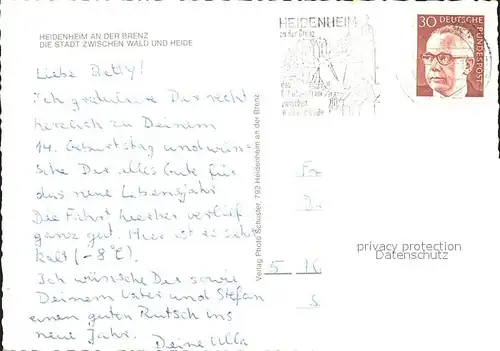 HEIDENHEIM AN DER BRENZ
DIE STADT ZWISCHEN WALD UND HEIDE
Liebe Betty!
Ich gratuliere Dir recht
herzlich zu Deinem
14. Geburtstag und wün-
sche Dir alles Gute für
das neue Lebensjahr
Die Fahrt hierher verlief
ganz gut. Hier ist es sehr
kalt (-8°C).
Ich wünsche Dir sowie
Deinem Vater und Stefan
einen guten Rutsch ins
neue Jahr.
Deine Ulla
Verlag Photo Schuster, 792 Heidenheim an der Brenz
HEIDENHEIM
an der Brenz
zwischen
30 DEUTSCHE
BUNDESPOST
Fr
D.
5 K
S.
privacy protection
Datenschutz